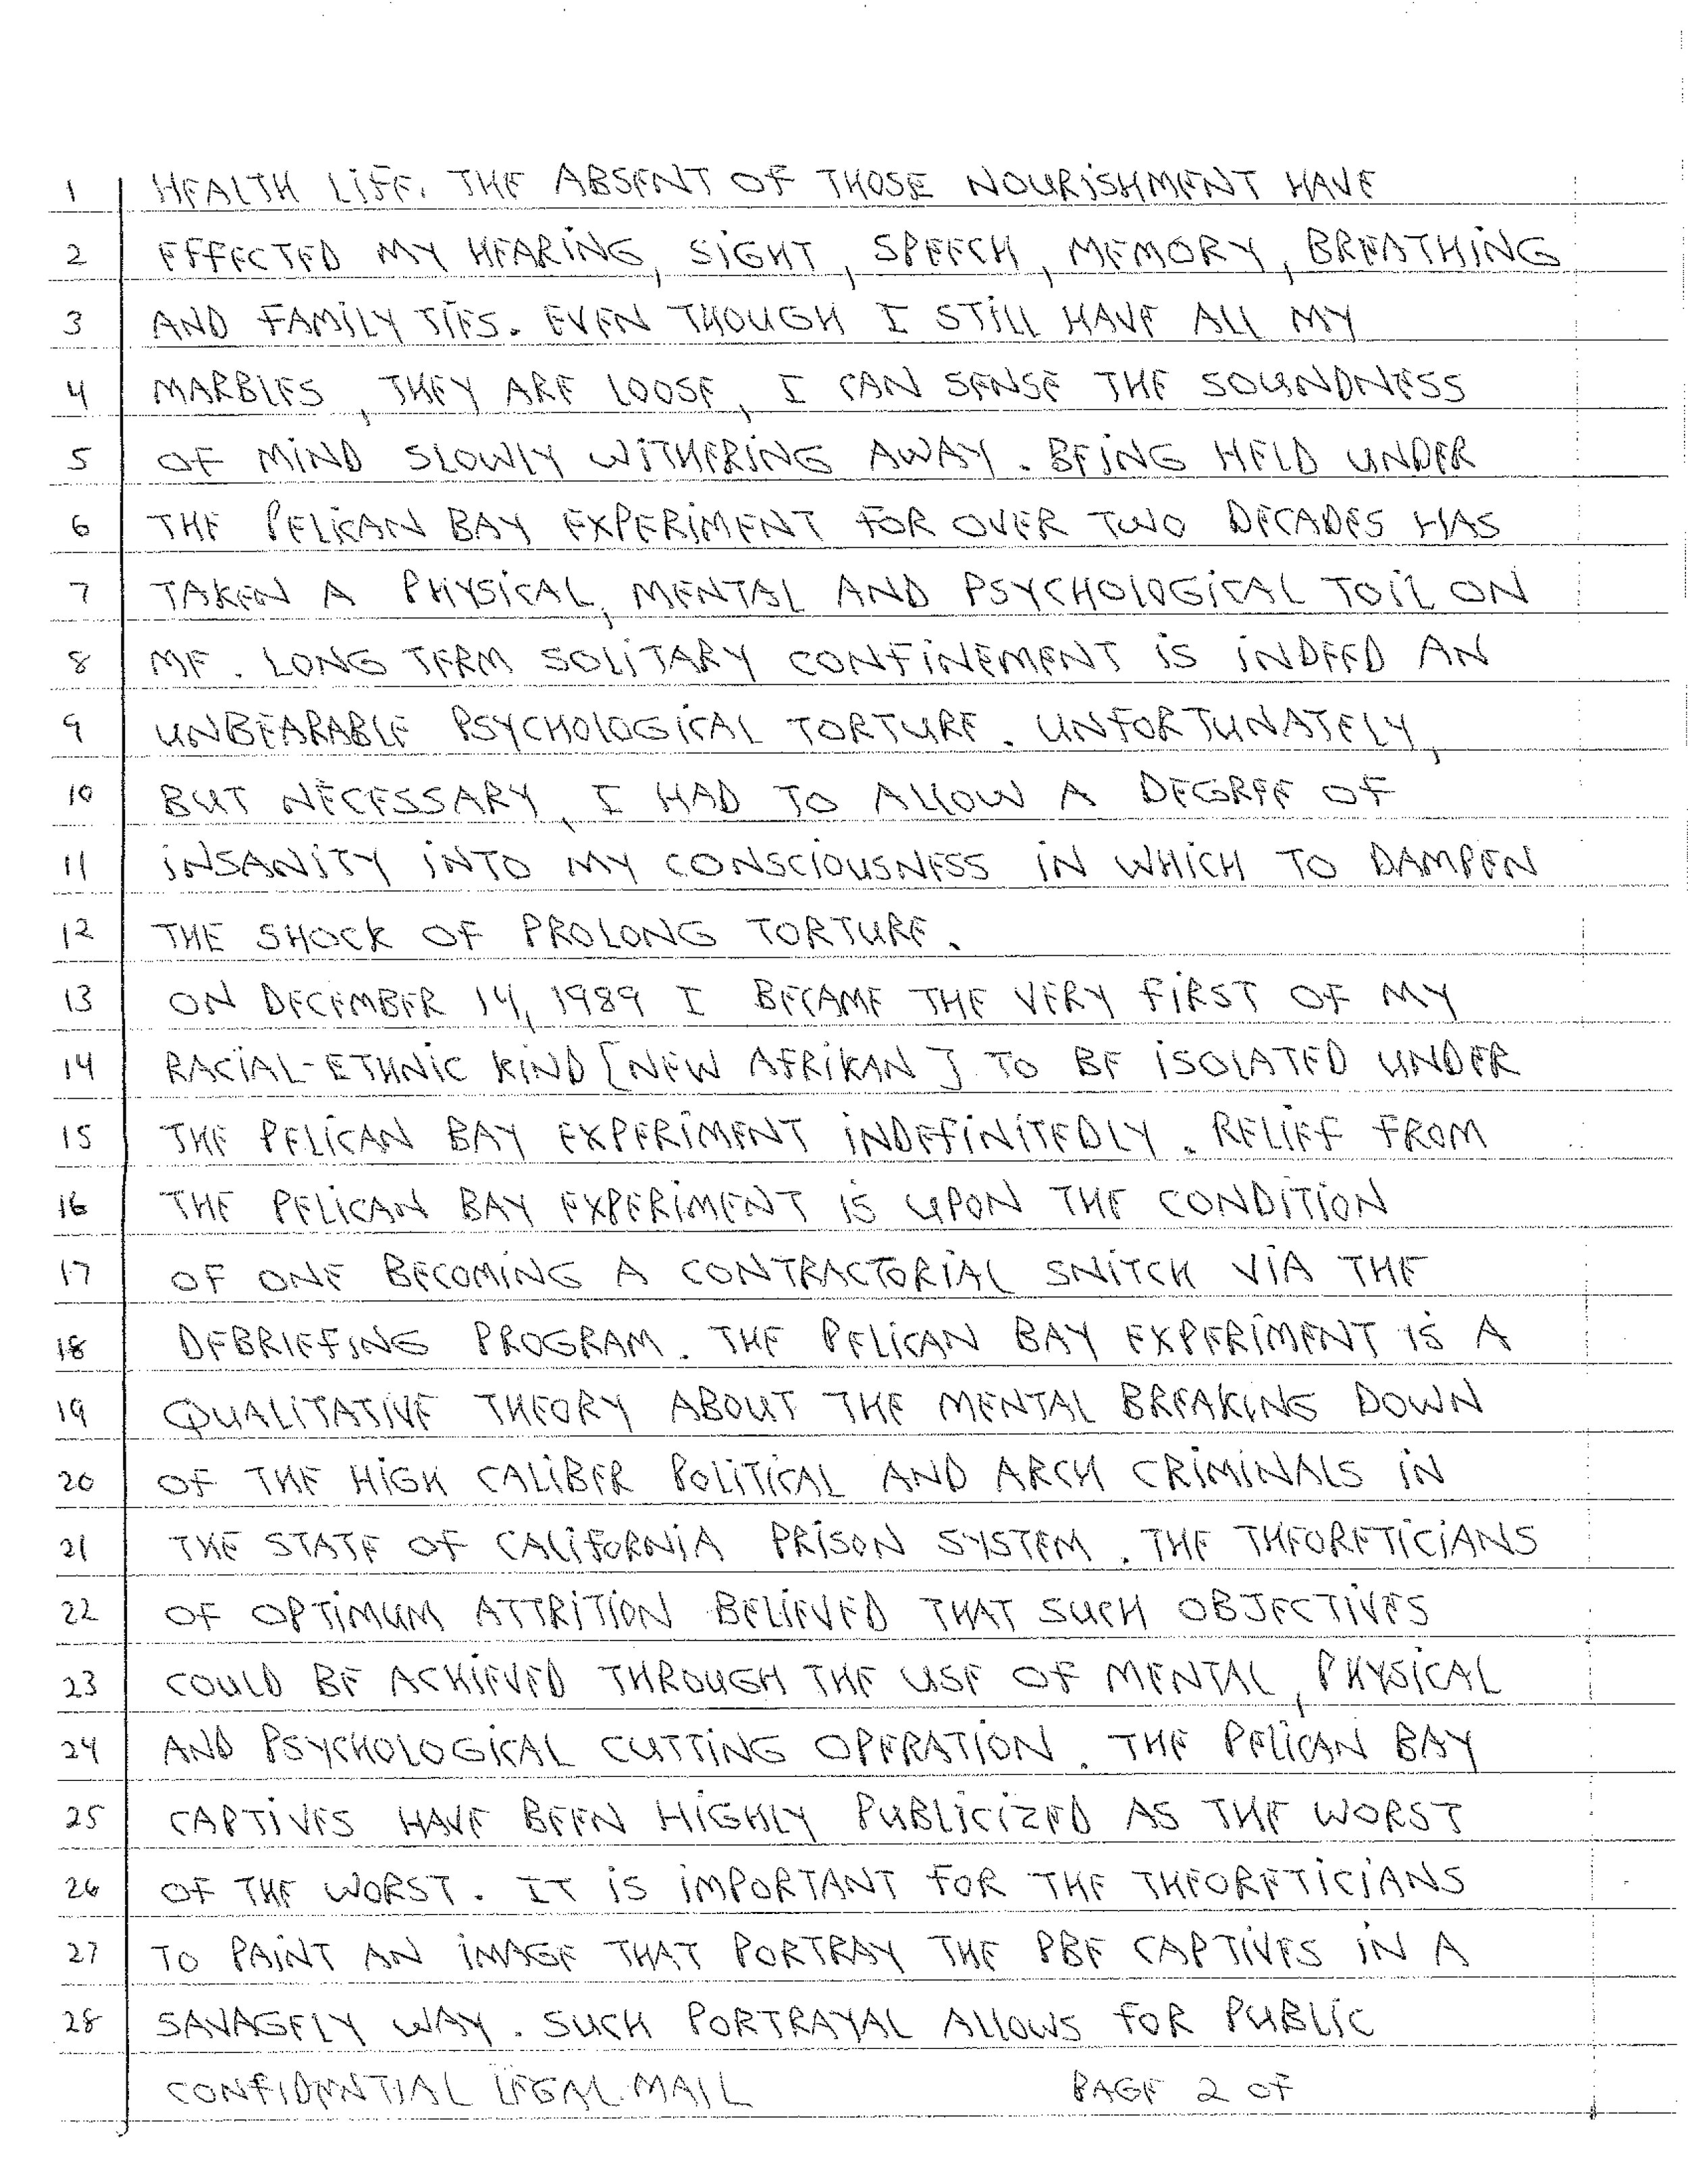 1 HEALTH LIFE. THE ABSENT OF THOSE NOURISHMENT HAVE
2 EFFECTED MY HEARING, SIGHT, SPEECH, MEMORY, BREATHING
3 AND FAMILY TIES. EVEN THOUGH I STILL HAVE ALL MY
4 MARBLES, THEY ARE LOOSE, I CAN SENSE THE SOUNDNESS
5 OF MIND SLOWLY WITHERING AWAY. BEING HELD UNDER
6 THE PELICAN BAY EXPERIMENT FOR OVER TWO DECADES HAS
7 TAKEN A PHYSICAL, MENTAL AND PSYCHOLOGICAL TOIL ON
8 ME. LONG TERM SOLITARY CONFINEMENT IS INDEED AN
9 UNBEARABLE PSYCHOLOGICAL TORTURE. UNFORTUNATELY,
10 BUT NECESSARY, I HAD TO ALLOW A DEGREE OF
11 INSANITY INTO MY CONSCIOUSNESS IN WHICH TO DAMPEN
12 THE SHOCK OF PROLONG TORTURE.
13 ON DECEMBER 14, 1989 I BECAME THE VERY FIRST OF MY
14 RACIAL-ETHNIC KIND [NEW AFRIKAN] TO BE ISOLATED UNDER
15 THE PELICAN BAY EXPERIMENT INDEFINITEDLY. RELIEF FROM
16 THE PELICAN BAY EXPERIMENT IS UPON THE CONDITION
17 OF ONE BECOMING A CONTRACTORIAL SNITCH VIA THE
18 DEBRIEFING PROGRAM. THE PELICAN BAY EXPERIMENT IS A
19 QUALITATIVE THEORY ABOUT THE MENTAL BREAKING DOWN
20 OF THE HIGH CALIBER POLITICAL AND ARCH CRIMINALS IN
21 THE STATE OF CALIFORNIA PRISON SYSTEM. THE THEORETICIANS
22 OF OPTIMUM ATTRITION BELIEVED THAT SUCH OBJECTIVES
23 COULD BE ACHIEVED THROUGH THE USE OF MENTAL, PHYSICAL
24 AND PSYCHOLOGICAL CUTTING OPERATION. THE PELICAN BAY
25 CAPTIVES HAVE BEEN HIGHLY PUBLICIZED AS THE WORST
26 OF THE WORST. IT IS IMPORTANT FOR THE THEORETICIANS
27 TO PAINT AN IMAGE THAT PORTRAY THE PBE CAPTIVES IN A
28 SAVAGELY WAY. SUCH PORTRAYAL ALLOWS FOR PUBLIC
CONFIDENTIAL LEGAL MAIL PAGE 2 OF